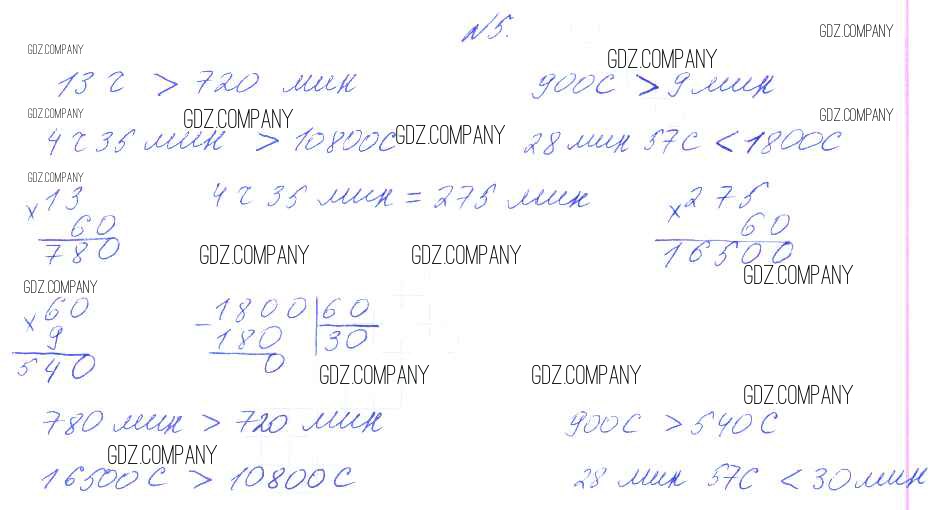 №5.
GDZ.COMPANY GDZ.COMPANY GDZ.COMPANY
13 ч > 720 мин 900с > 9 мин
GDZ.COMPANY GDZ.COMPANY GDZ.COMPANY GDZ.COMPANY
4 ч 35 мин > 10800с 28 мин 57с < 1800с
GDZ.COMPANY
× 13 4 ч 35 мин = 275 мин × 275
60 60
780 16500
GDZ.COMPANY GDZ.COMPANY GDZ.COMPANY
GDZ.COMPANY
× 60 - 1800 | 60
9 180 30
540 0
GDZ.COMPANY GDZ.COMPANY GDZ.COMPANY
780 мин > 720 мин 900с > 540с
GDZ.COMPANY
16500с > 10800с 28 мин 57с < 30 мин